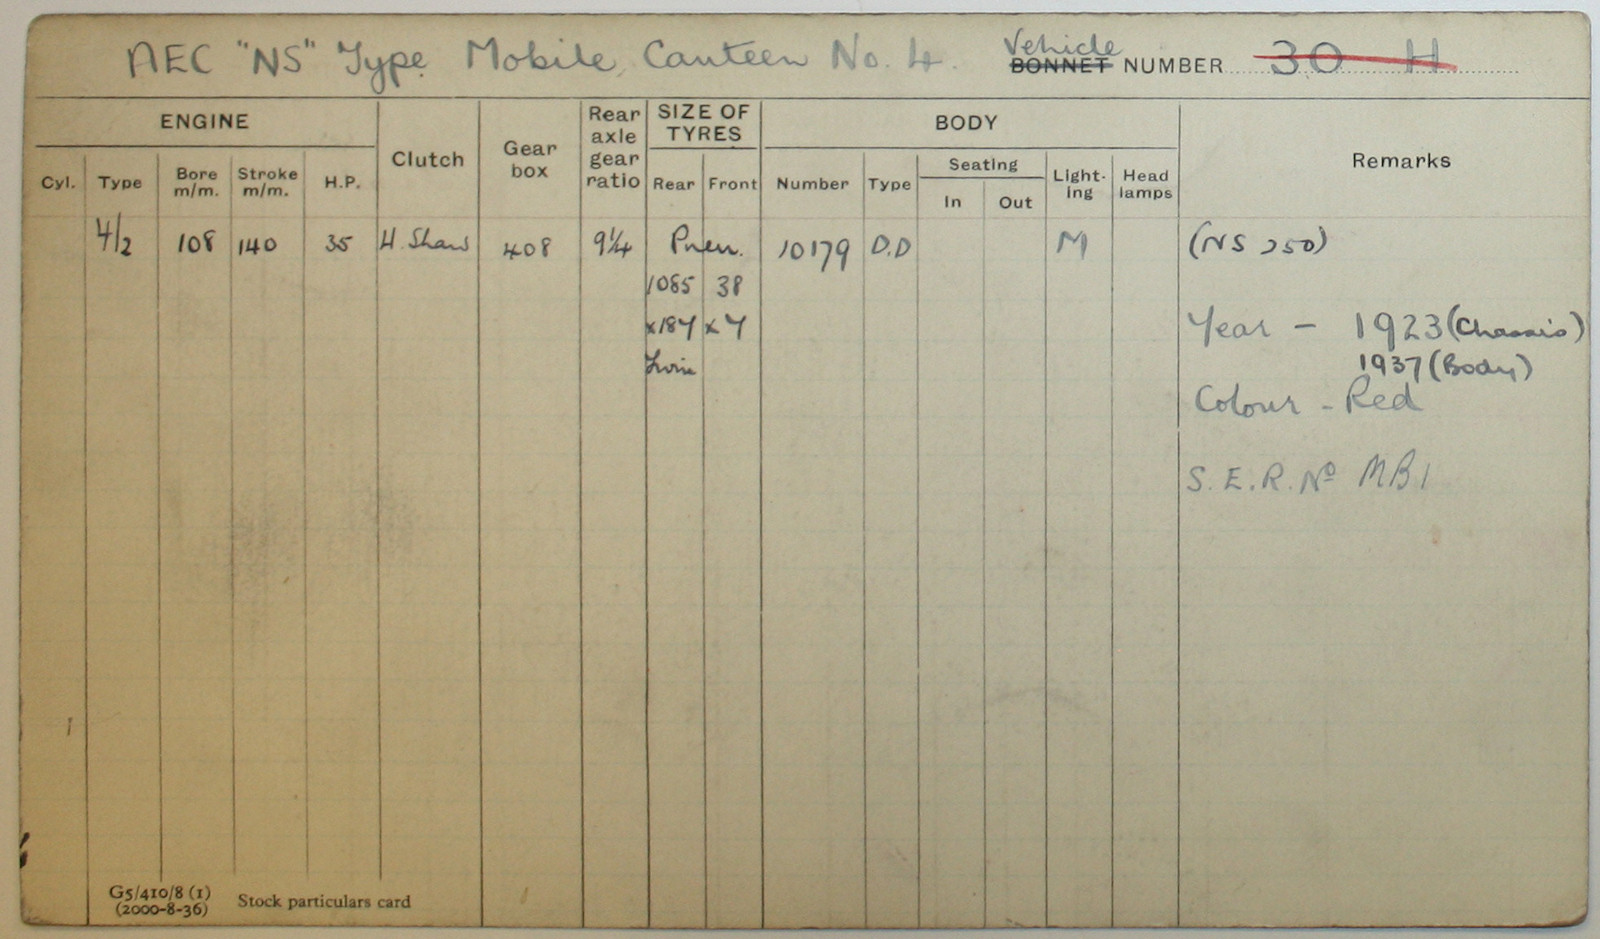 AEC "NS" Type Mobile Canteen No. 4. Vehicle BONNET NUMBER 30 H
ENGINE
Clutch
Gear box
Rear axle gear ratio
SIZE OF TYRES
BODY
Remarks
Cyl. Type Bore m/m. Stroke m/m. H.P.
Rear Front
Number Type Seating In Out Light-ing Head lamps
4/2 108 140 35 H. Shaw 408 9¼ Pneu. 10179 D.D M (NS 250)
1085 38
x184 x 7
Twin
Year - 1923 (Chassis)
1937 (Body)
Colour - Red
S.E.R. Nº MB1
G5/410/8 (1)
(2000-8-36) Stock particulars card